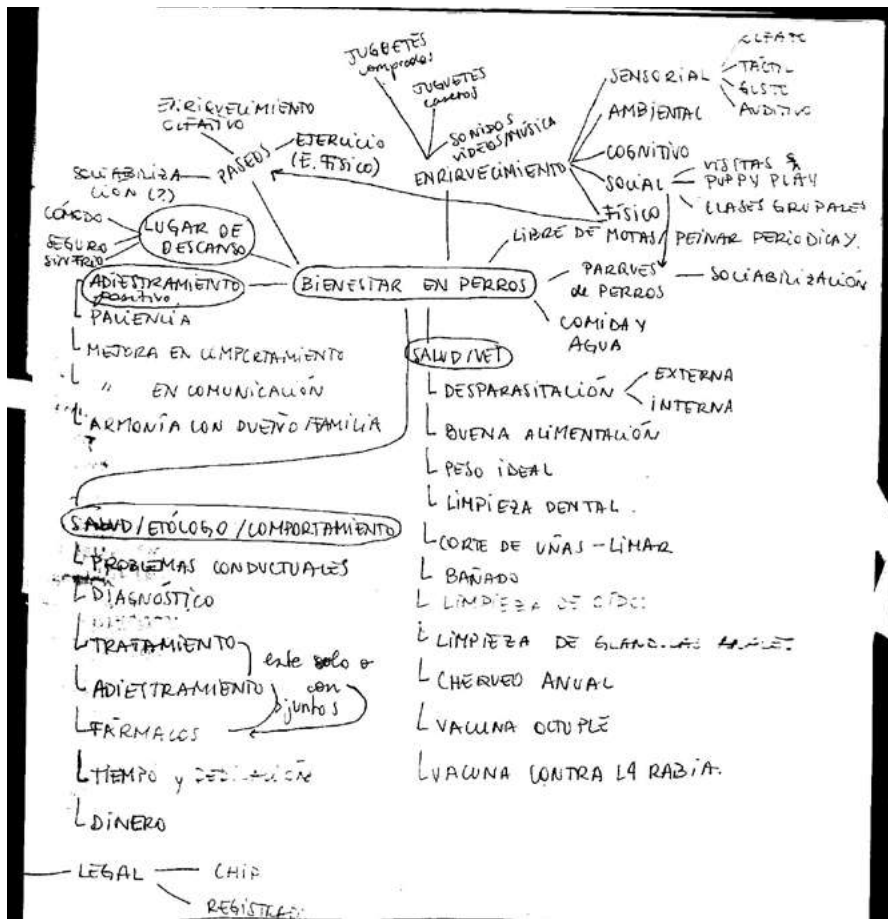 JUGUETES
comprados
JUGUETES
caseros
SONIDOS
VIDEOS/MÚSICA
ENRIQUECIMIENTO
SENSORIAL
OLFATO
TÁCTIL
GUSTO
AUDITIVO
AMBIENTAL
COGNITIVO
SOCIAL
VISITAS
PUPPY PLAY
CLASES GRUPALES
FÍSICO
ENRIQUECIMIENTO
OLFATIVO
PASEOS
EJERCICIO
(E. FÍSICO)
SOCIABILIZA
CIÓN (?)
CÓMODO
SEGURO
SIN FRIO
LUGAR DE
DESCANSO
LIBRE DE MOTAS / PEINAR PERIODICAY.
BIENESTAR EN PERROS
PARQUES
de PERROS
SOCIABILIZACIÓN
COMIDA Y
AGUA
ADIESTRAMIENTO
positivo
PACIENCIA
MEJORA EN COMPORTAMIENTO
" EN COMUNICACIÓN
ARMONÍA CON DUEÑO/FAMILIA
?
SALUD/VET
DESPARASITACIÓN
EXTERNA
INTERNA
BUENA ALIMENTACIÓN
PESO IDEAL
LIMPIEZA DENTAL.
CORTE DE UÑAS - LIMAR
BAÑADO
LIMPIEZA DE OÍDO
LIMPIEZA DE
CHEQUEO ANUAL
VACUNA OCTUPLE
VACUNA CONTRA LA RABIA.
SALUD/ETÓLOGO/COMPORTAMIENTO
PROBLEMAS CONDUCTUALES
DIAGNÓSTICO
TRATAMIENTO
ADIESTRAMIENTO
FÁRMACOS
este solo o
con
juntos
TIEMPO y DEDICACIÓN
DINERO
LEGAL
CHIP